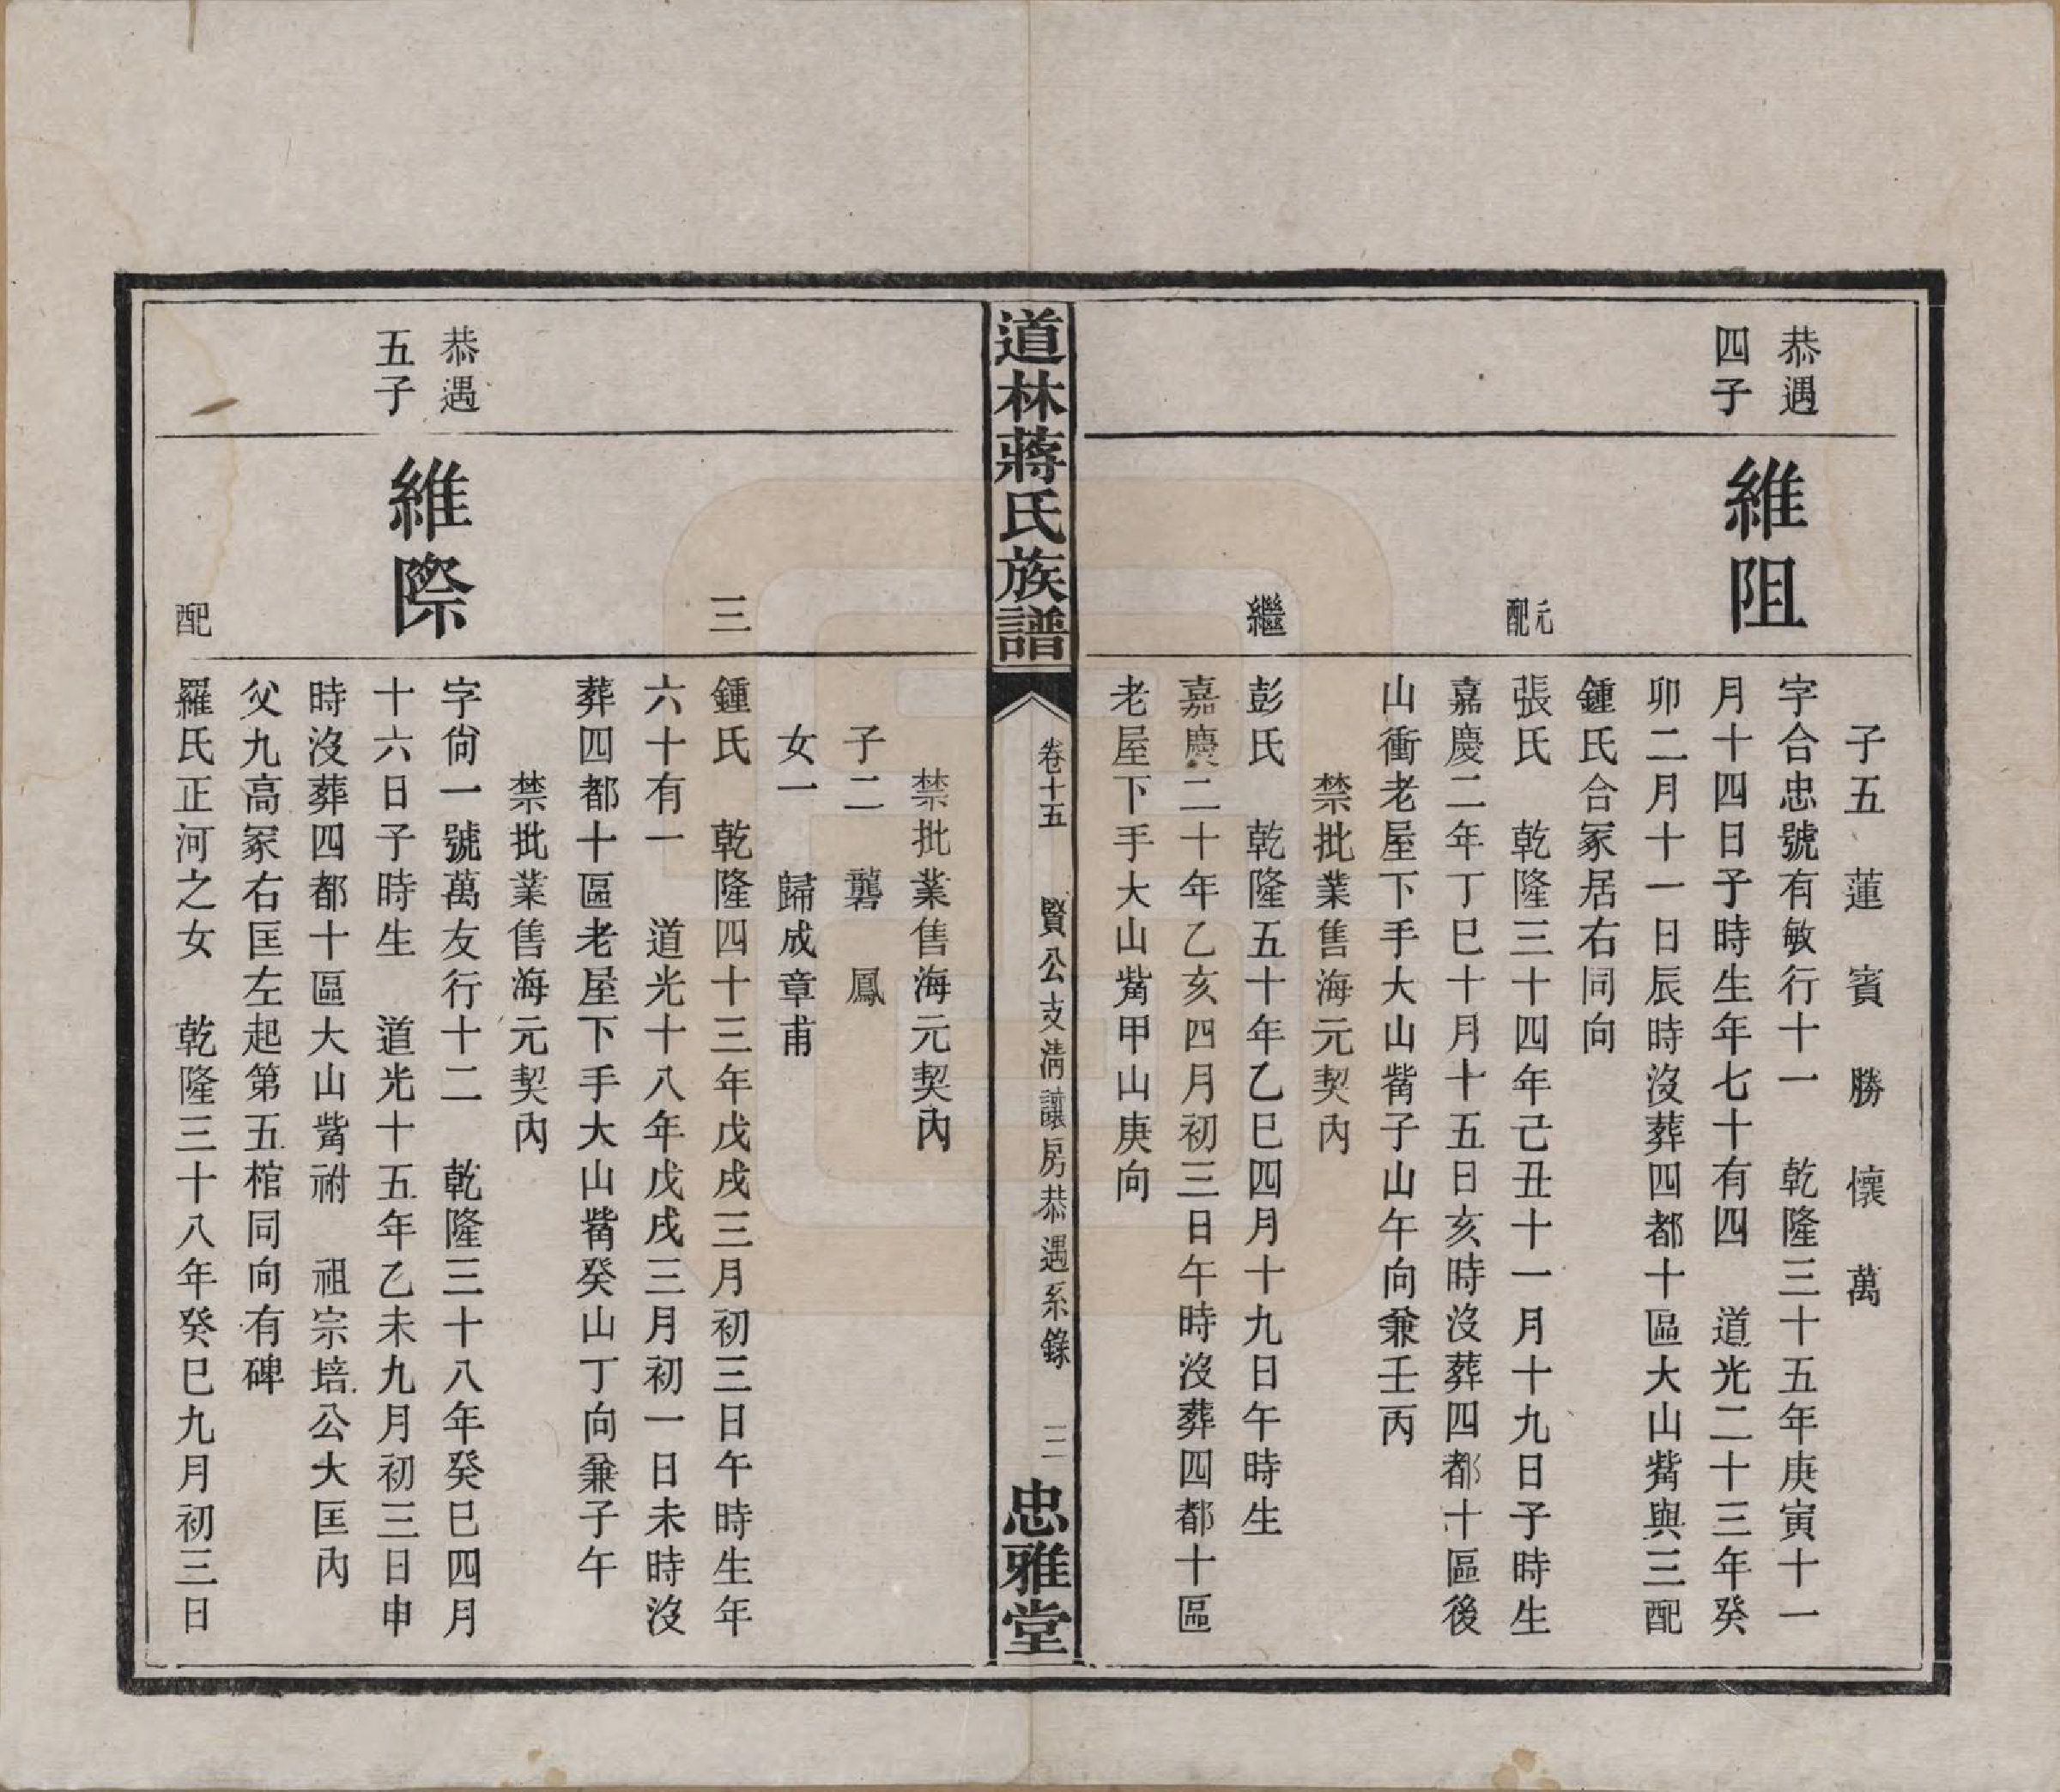 子五 蓮 賓 勝 懷 萬
恭遇
四子
維阻
字合忠號有敏行十一 乾隆三十五年庚寅十一
月十四日子時生年七十有四 道光二十三年癸
卯二月十一日辰時沒葬四都十區大山觜與三配
鍾氏合冢居右同向
元配
張氏 乾隆三十四年己丑十一月十九日子時生
嘉慶二年丁巳十月十五日亥時沒葬四都十區後
山衝老屋下手大山觜子山午向兼壬丙
禁批業售海元契內
繼
彭氏 乾隆五十年乙巳四月十九日午時生
嘉慶二十年乙亥四月初三日午時沒葬四都十區
老屋下手大山觜甲山庚向
道林蔣氏族譜
卷十五 賢公支淸讓房恭遇系錄 三
忠雅堂
禁批業售海元契內
子二 龔 鳳
女一 歸成章甫
三
鍾氏 乾隆四十三年戊戌三月初三日午時生年
六十有一 道光十八年戊戌三月初一日未時沒
葬四都十區老屋下手大山觜癸山丁向兼子午
禁批業售海元契內
恭遇
五子
維際
字尙一號萬友行十二 乾隆三十八年癸巳四月
十六日子時生 道光十五年乙未九月初三日申
時沒葬四都十區大山觜祔 祖宗培公大匡內
父九高冢右匡左起第五棺同向有碑
配
羅氏正河之女 乾隆三十八年癸巳九月初三日